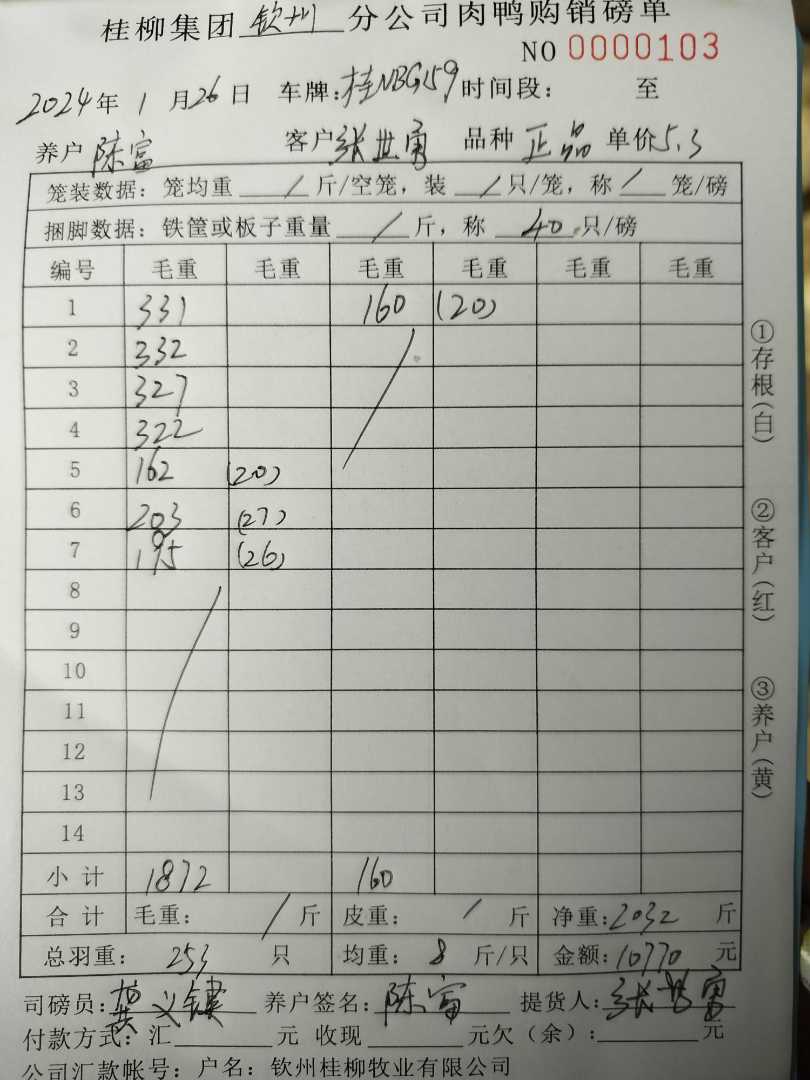 桂柳集团 钦州 分公司肉鸭购销磅单
NO 0000103
2024年 1 月 26 日 车牌:桂NBG159 时间段: 至
养户 陈富 客户 张世勇 品种 正品 单价 5.3
笼装数据: 笼均重 / 斤/空笼, 装 / 只/笼, 称 / 笼/磅
捆脚数据: 铁筐或板子重量 / 斤, 称 40 只/磅
编号 毛重 毛重 毛重 毛重 毛重 毛重
1 331 160 (20)
2 332
3 327
4 322
5 162 (20)
6 203 (27)
7 195 (26)
8
9
10
11
12
13
14
小计 1872 160
合计 毛重: / 斤 皮重: / 斤 净重: 2032 斤
总羽重: 253 只 均重: 8 斤/只 金额: 10770 元
司磅员: 义键 养户签名: 陈富 提货人: 张世勇
付款方式: 汇 元 收现 元欠(余): 元
公司汇款帐号: 户名: 钦州桂柳牧业有限公司
①存根(白)
②客户(红)
③养户(黄)